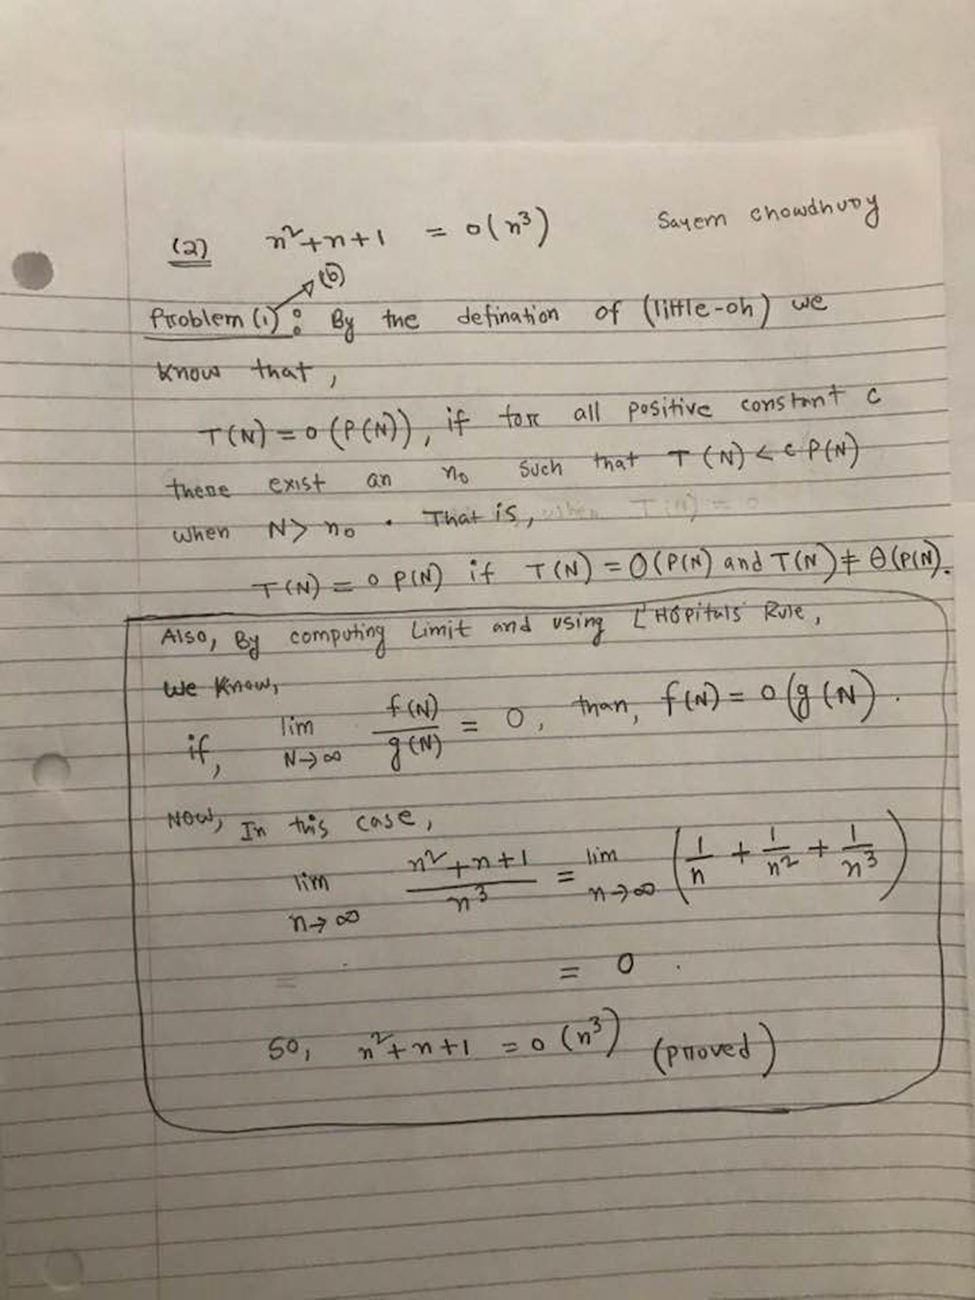 Sayem Chowdhury
(2) n²+n+1 = o(n³)
(b)
Problem (1): By the defination of (little-oh) we
know that,
T(N) = o(P(N)), if for all positive constant c
there exist an n₀ such that T(N) < c P(N)
when N > n₀. That is,
T(N) = o P(N) if T(N) = O(P(N) and T(N) ≠ Θ(P(N).
Also, By computing Limit and using L'Hôpitals Rule,
We Know,
if, lim N→∞ f(N)/g(N) = 0, than, f(N) = o(g(N).
Now, In this case,
lim n→∞ (n²+n+1)/n³ = lim n→∞ (1/n + 1/n² + 1/n³)
= 0.
So, n²+n+1 = o(n³) (proved)